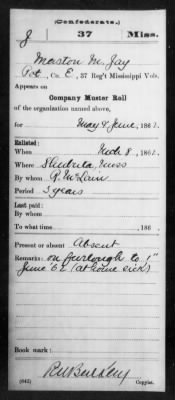 (Confederate.)
J 37 Miss.
Marston M. Jay
Pvt., Co. E, 37 Reg't Mississippi Vols.
Appears on
Company Muster Roll
of the organization named above,
for May & June, 1862.
Enlisted:
When Mch 8, 1862.
Where Shubuta, Miss
By whom R. McLain
Period 3 years
Last paid:
By whom
To what time , 186 .
Present or absent Absent
Remarks: on furlough to 1st
June 62 (at home sick)
Book mark:
(642) Copyist.